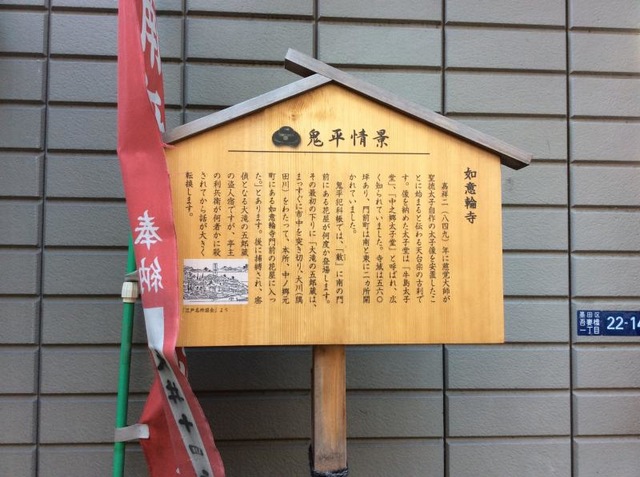 鬼平情景
如意輪寺
嘉祥二(八四九)年に慈覚大師が
聖徳太子自作の太子像を安置したこ
とに始まると伝わる天台宗の古刹で
す。像を納めた太子堂は「牛島太子
堂」、「中之郷太子堂」と呼ばれ、広
く知られていました。寺域は五六〇
坪あり、門前町は南と東に二カ所開
かれていました。
鬼平犯科帳では、「敵」に南の門
前にある花屋が何度か登場します。
その最初の下りに「大滝の五郎蔵は、
まっすぐに市中を突き切り、大川(隅
田川)をわたって、本所、中ノ郷元
町にある如意輪寺門前の花屋に入っ
た。」とあります。後に捕縛され、密
偵となる大滝の五郎蔵
の盗人宿ですが、亭主
の利兵衛が何者かに殺
されてから話が大きく
転換します。
「江戸名所図会」より
奉納
墨田区
吾妻橋
一丁目
22-14